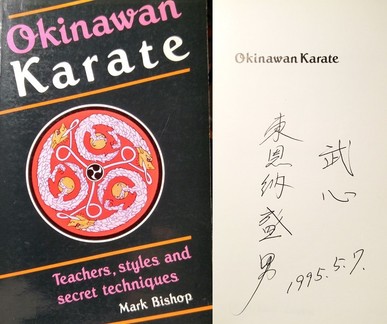 Okinawan
Karate
Teachers, styles and
secret techniques
Mark Bishop
Okinawan Karate
武心
東恩納盛男
1995.5.7.